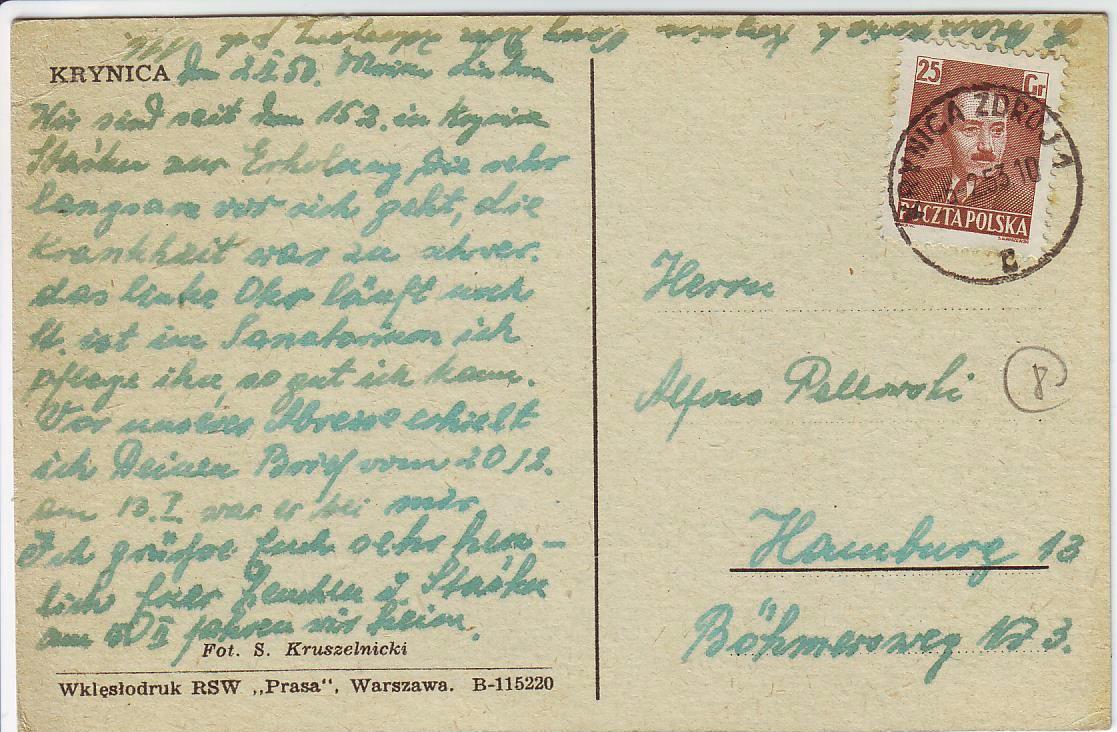 KRYNICA den 2 II 50. Meine Lieben
Wir sind seit dem 15 2. in Krynica
zur Erholung, die sehr
langsam vor sich geht, die
Krankheit war zu schwer.
das linke Ohr läuft noch
St. ist im Sanatorium ich
pflege ihn, so gut ich kann.
Vor unserer Abreise erhielt
ich Deinen Brief vom 20 12.
am 13. I war er bei mir
Ich grüße Euch sehr herz-
lich Euer
am II fahren wir heim.
Fot. S. Kruszelnicki
Wklęsłodruk RSW „Prasa“, Warszawa. B-115220
25 Gr
POCZTA POLSKA
KRYNICA ZDRÓJ 1
-2.53.10
c
Herrn
Alfons
8
Hamburg 13
Böhmersweg № 3.